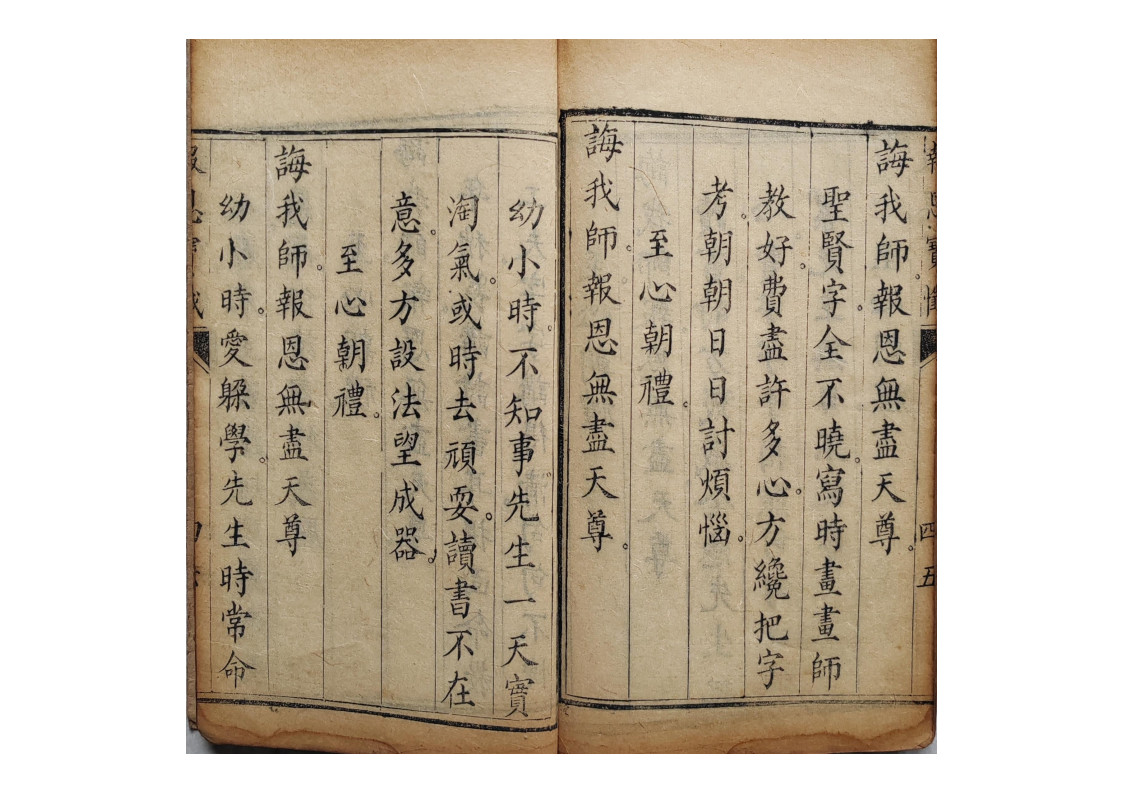 報恩寶懺
四五
誨我師。報恩無盡天尊。
聖賢字全不曉。寫時畫畫師
教好。費盡許多心。方纔把字
考。朝朝日日討煩惱。
至心朝禮。
誨我師。報恩無盡天尊。
幼小時。不知事先生一天實
淘氣。或時去頑耍。讀書不在
意。多方設法望成器。
至心朝禮。
誨我師。報恩無盡天尊
幼小時。愛躲學。先生時常命